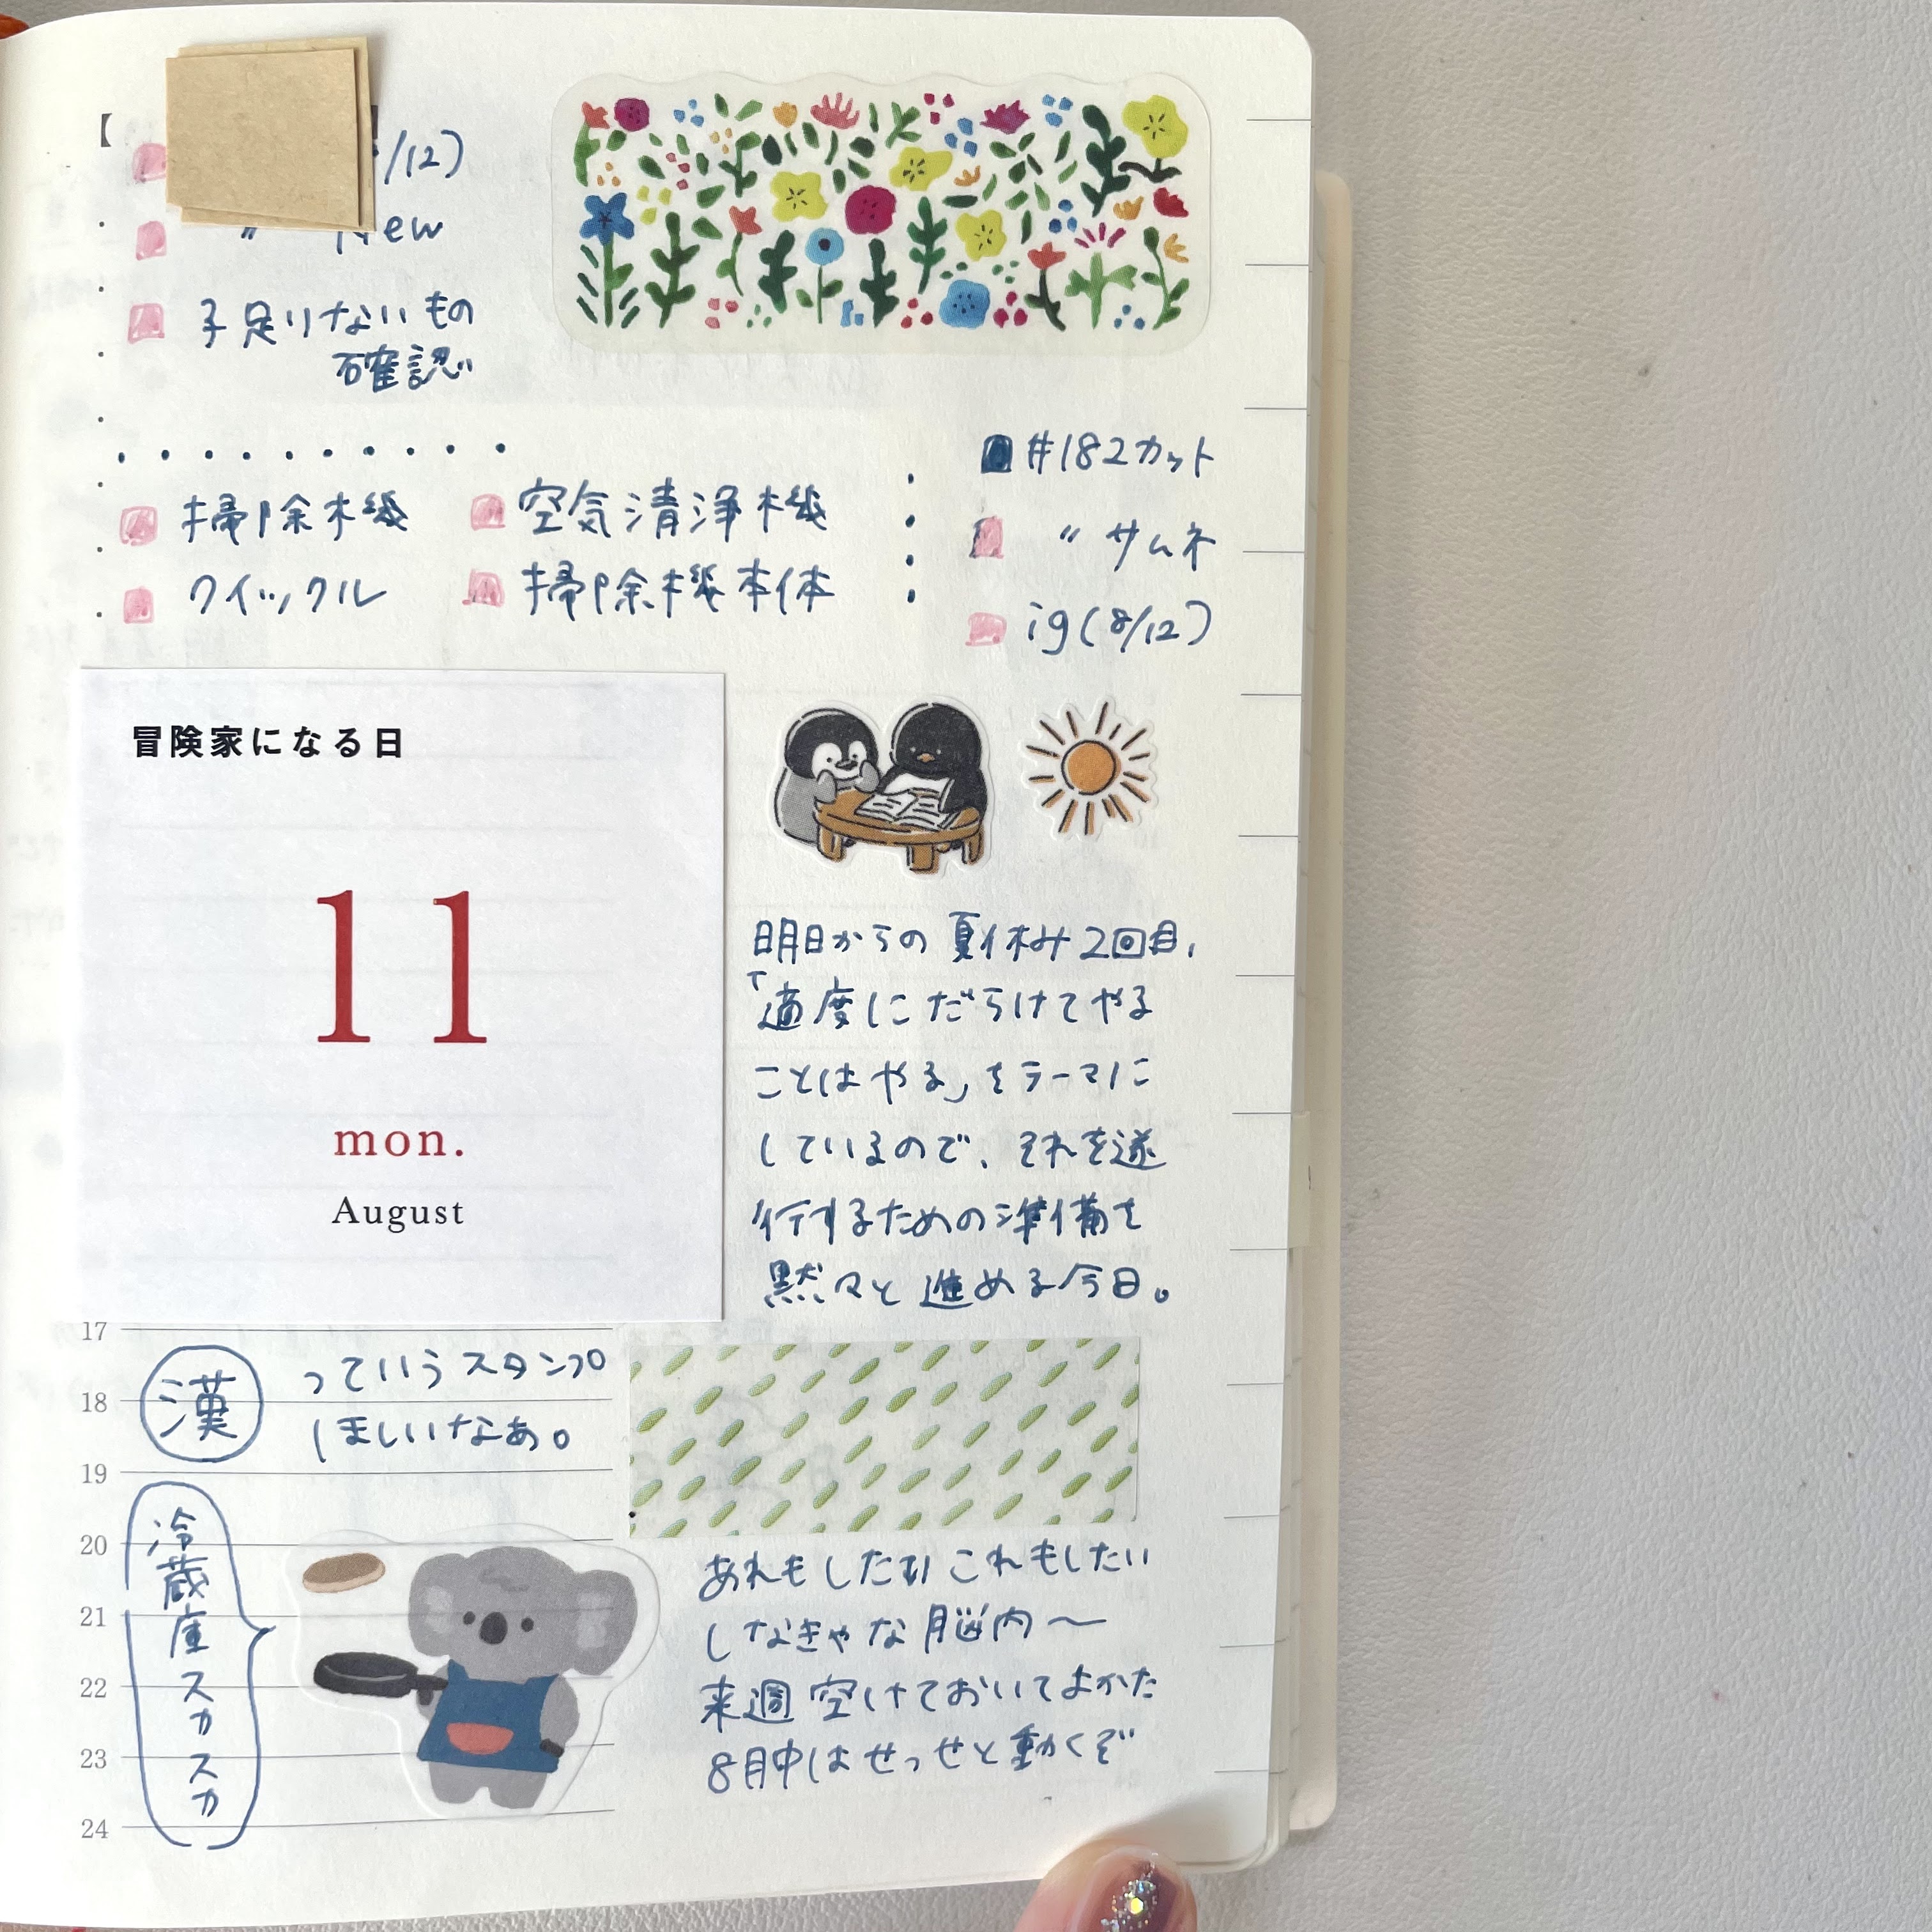 【
/12)
〃 New
子足りないもの
確認
掃除機
クイックル
空気清浄機
掃除機本体
#182カット
〃 サムネ
ig(8/12)
冒険家になる日
11
mon.
August
明日からの夏休み2回目、
「適度にだらけてやる
ことはやる」をテーマに
しているので、それを遂
行するための準備を
黙々と進める今日。
17
18
19
20
21
22
23
24
漢 っていうスタンプ
ほしいなあ。
冷蔵庫スカスカ
あれもしたい これもしたい
しなきゃな脳内〜
来週空けておいてよかた
8月中はせっせと動くぞ